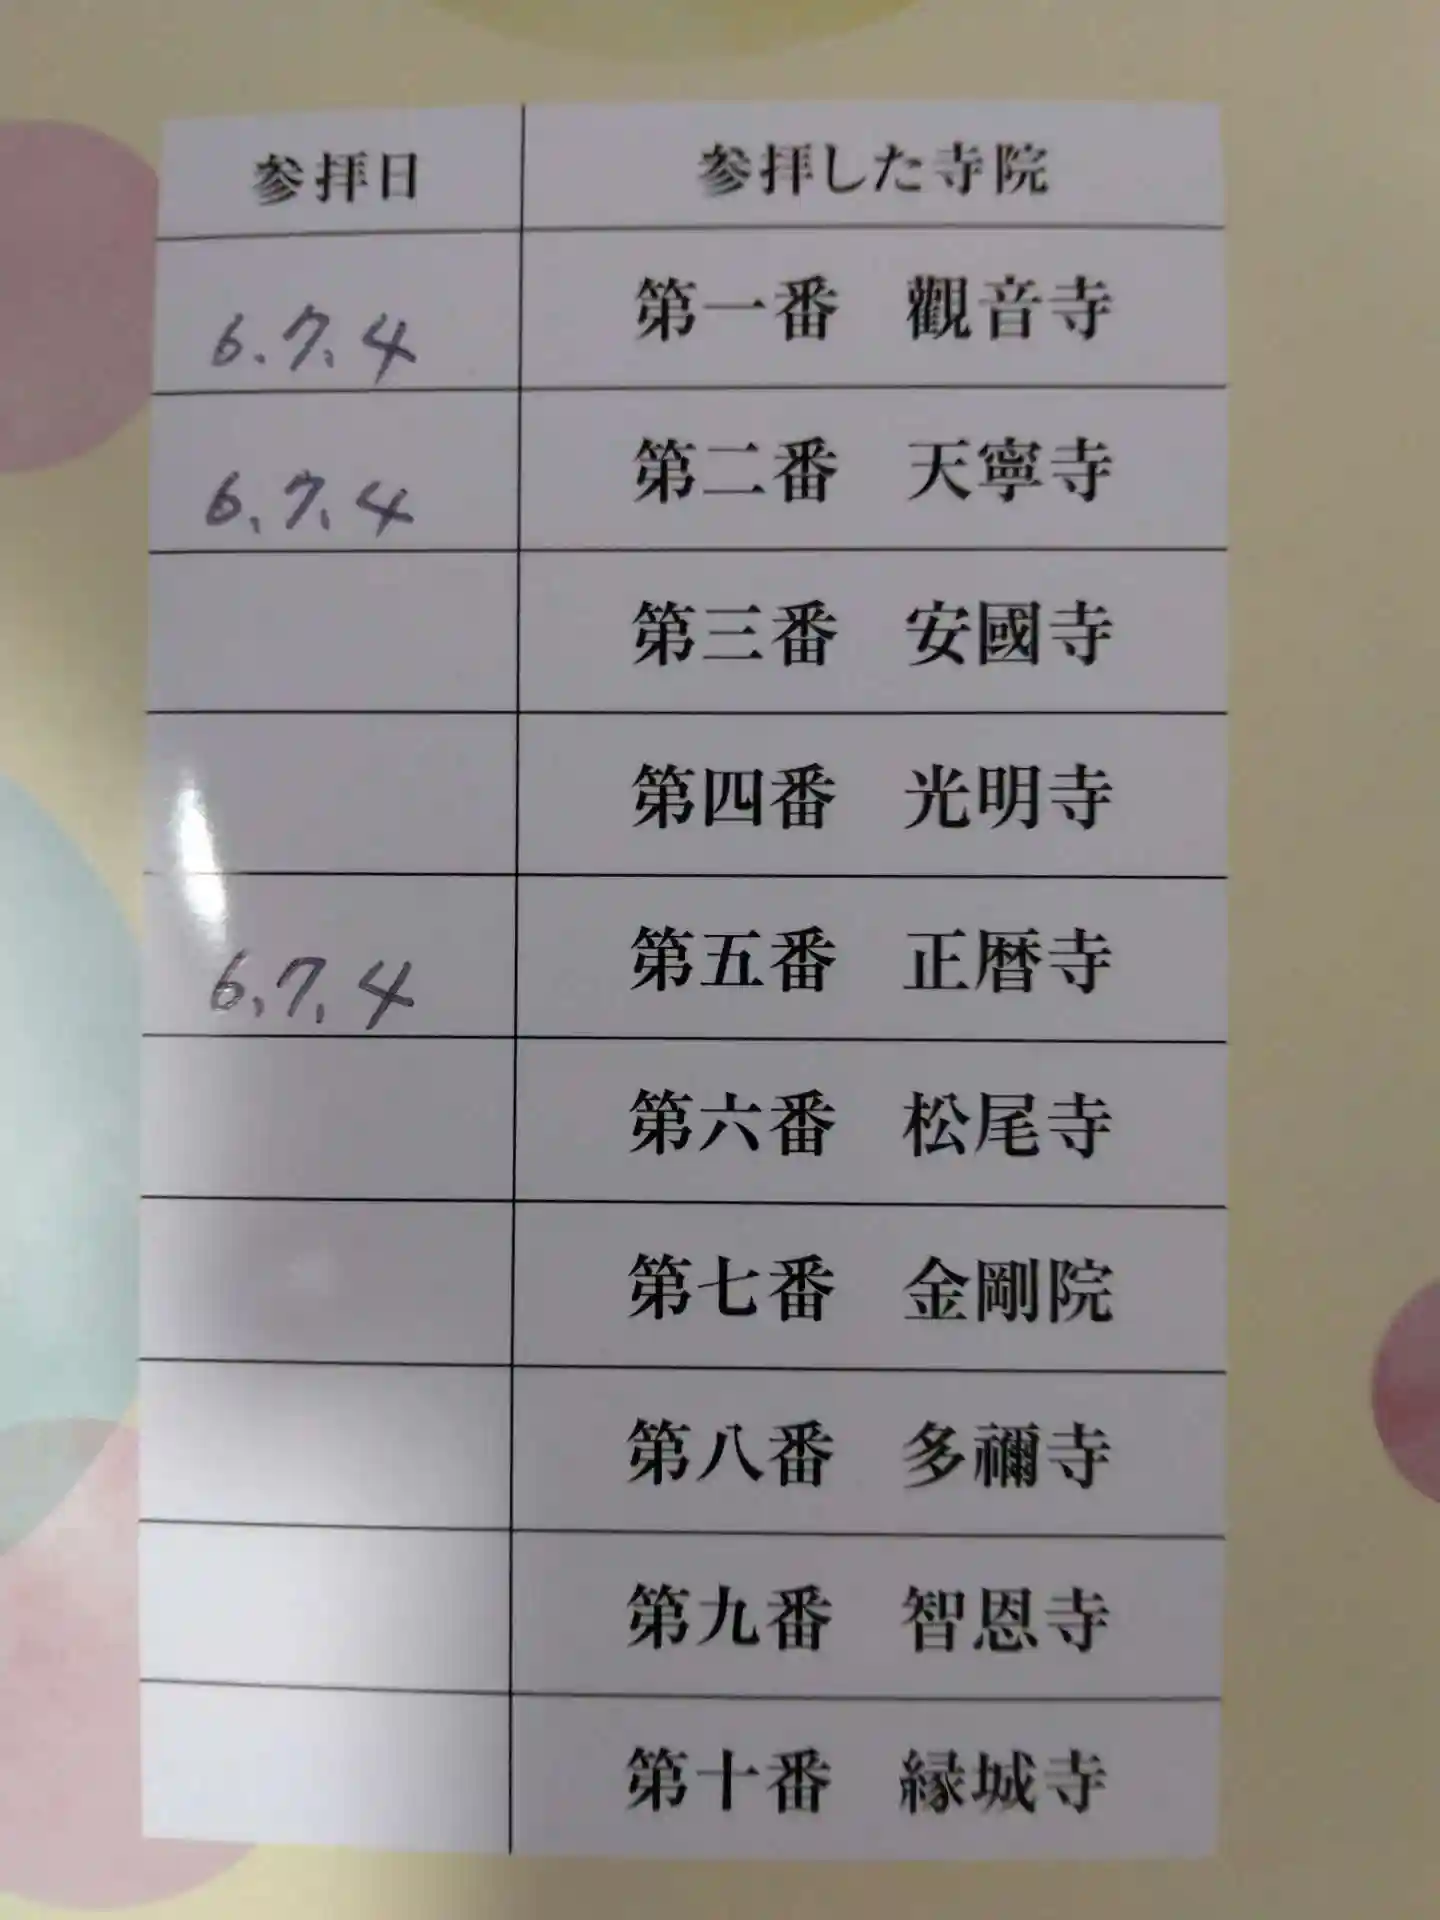 参拝日 参拝した寺院
6.7.4 第一番 觀音寺
6.7.4 第二番 天寧寺
第三番 安國寺
第四番 光明寺
6.7.4 第五番 正暦寺
第六番 松尾寺
第七番 金剛院
第八番 多禰寺
第九番 智恩寺
第十番 縁城寺